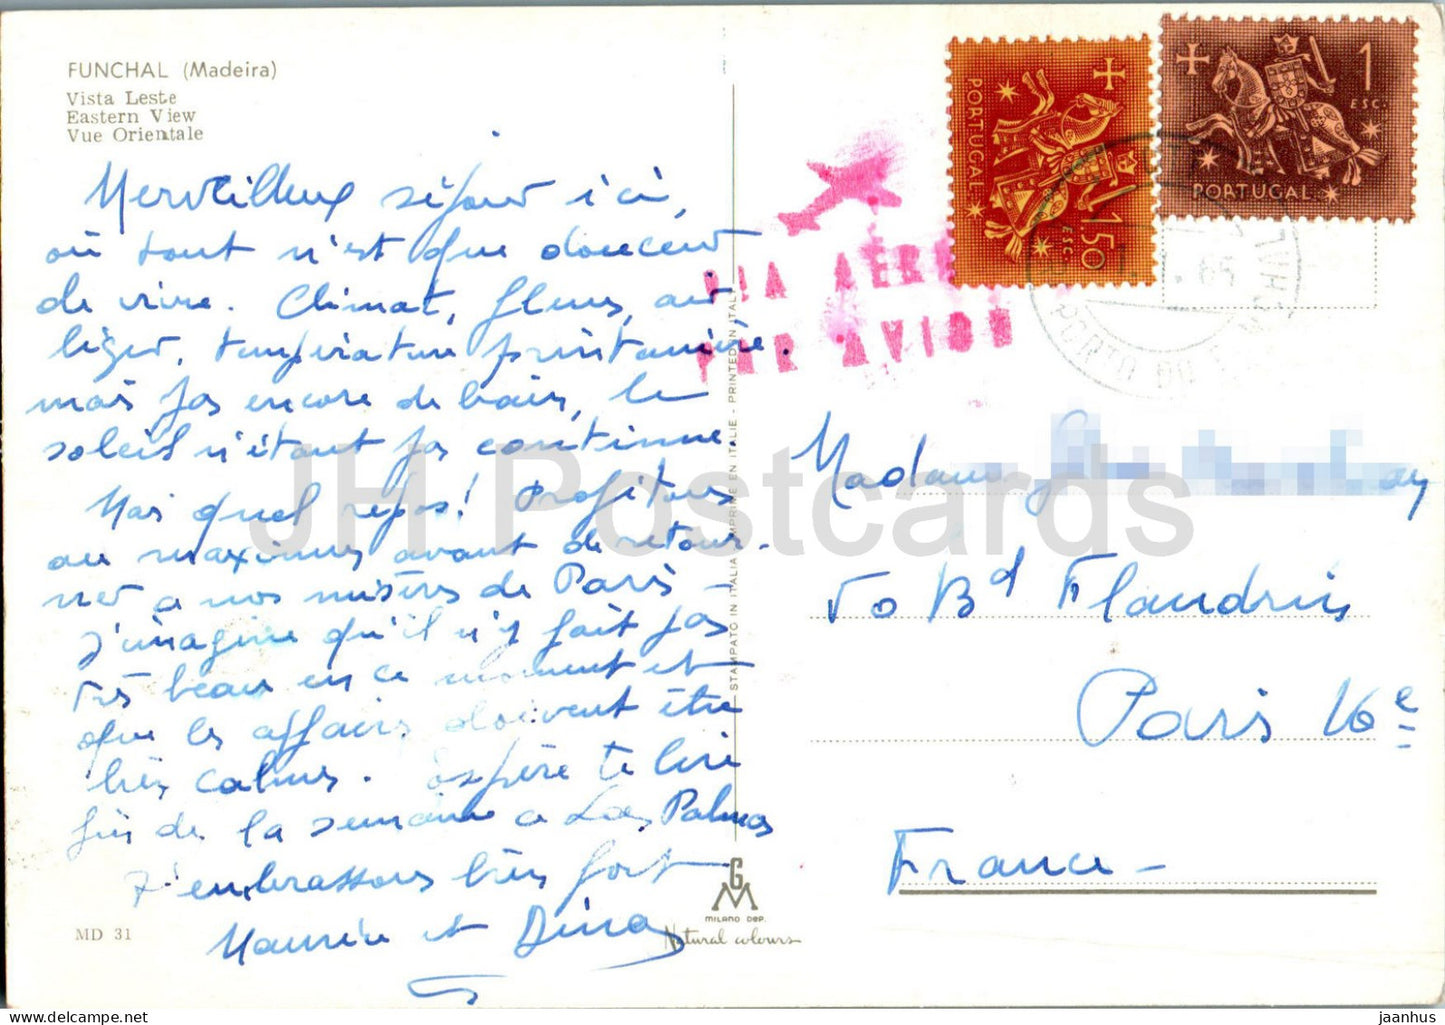 FUNCHAL (Madeira)
Vista Leste
Eastern View
Vue Orientale
Merveilleux séjour ici,
où tout n'est que douceur
de vivre. Climat, fleurs, air
léger, température printanière.
mais pas encore de bain, le
soleil n'étant pas continue.
Mais quel repos! Profitons
au maximum avant de retour-
ner a nos misères de Paris -
J'imagine qu'il n'y fait pas
très beau en ce moment et
que les affaires doivent être
très calmes. Espère te lire
fin de la semaine a Las Palmas
T'embrassons très fort
Maurice et Dina
MD 31
STAMPATO IN ITALIA - IMPRIME EN ITALIE - PRINTED IN ITALY
GM
MILANO DEP.
Natural colours
VIA AÉREA
PAR AVION
PORTUGAL
1.50
ESC.
1
ESC.
PORTUGAL
PORTO DO
Madame
50 Bd Flandrin
Paris 16e
France -
JH Postcards
jaanhus